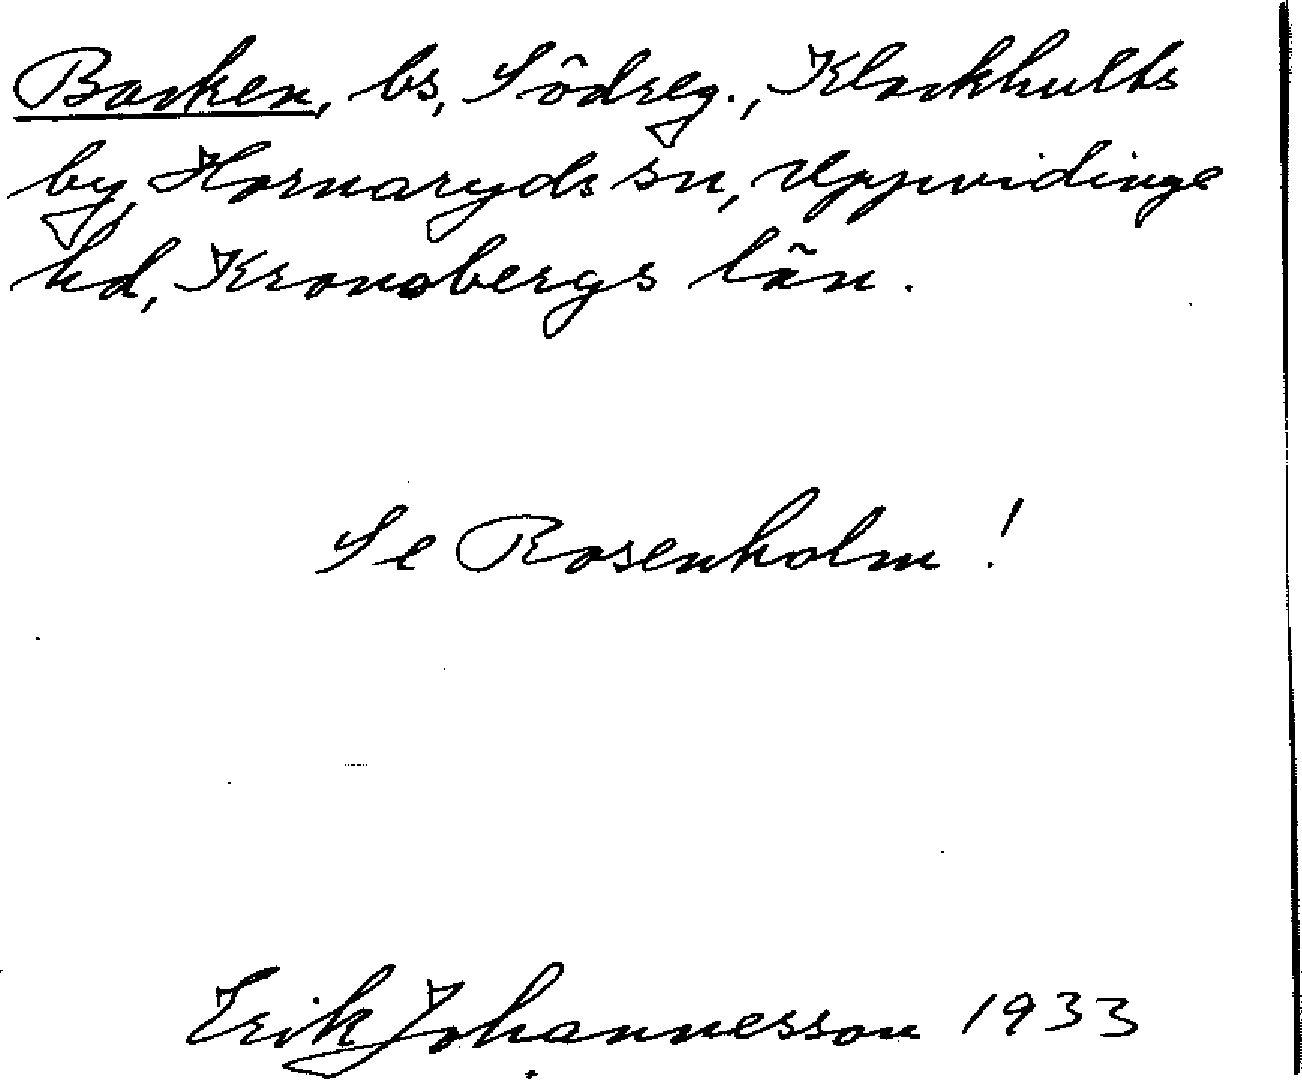 Backen, bs, Södreg., Klackhults
by, Hornaryds sn, Uppvidinge
hd, Kronobergs län.
Se Rosenholm!
Erik Johannesson 1933